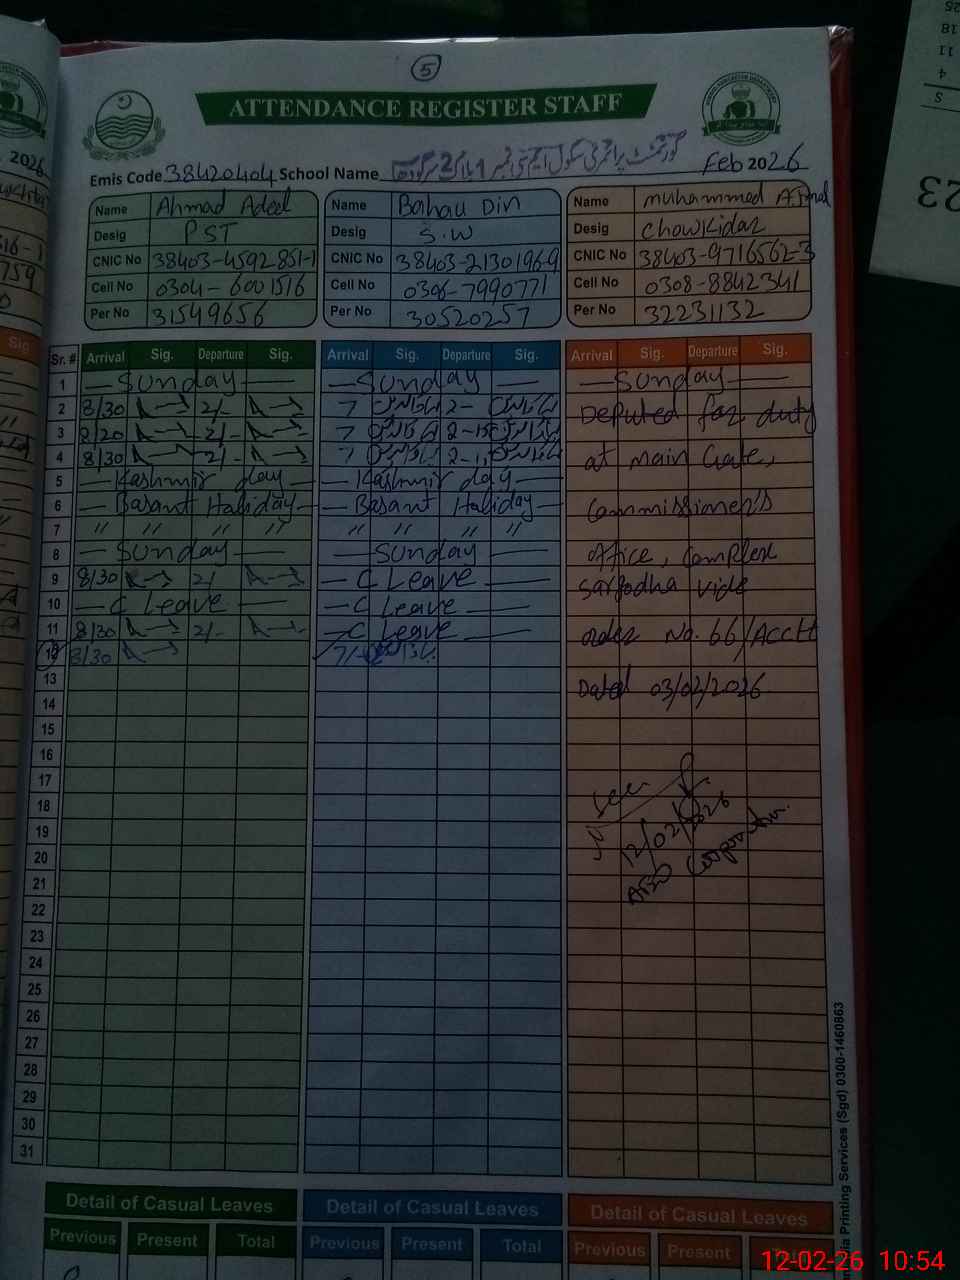 5
ATTENDANCE REGISTER STAFF
Emis Code 38420404 School Name گورنمنٹ پرائمری سکول ایم سی نمبر 1 بلاک 2 سرگودھا Feb 2026
Name Ahmad Adeel
Desig PST
CNIC No 38403-4592851-1
Cell No 0304-6001516
Per No 31549656
Name Bahau Din
Desig S.W
CNIC No 38403-2130196-9
Cell No 0306-7990771
Per No 30520257
Name Muhammad Ajmal
Desig Chowkidar
CNIC No 38403-9716562-3
Cell No 0308-8842341
Per No 32231132
Sr. # Arrival Sig. Departure Sig. Arrival Sig. Departure Sig. Arrival Sig. Departure Sig.
1 — Sunday — — Sunday — — Sunday —
2 8/30 2/- 7 2- Deputed for duty
3 8/20 2/- 7 2-15
4 8/30 2/- 7 2-1 at main Gate,
5 — Kashmir day — — Kashmir day —
6 — Basant Haliday — — Basant Haliday — Commissioner's
7 " " " " " " " "
8 — Sunday — — Sunday — office, Complex
9 8/30 2/ — C Leave — Sargodha vide
10 — C Leave — — C Leave —
11 8/30 2/- — C Leave — order No. 66/Acctt
12 8/30 7/-
13 Dated 03/02/2026
14
15
16
17
18 Seen
19 12/02/2026
20 AEO
21
22
23
24
25
26
27
28
29
30
31
Detail of Casual Leaves Detail of Casual Leaves Detail of Casual Leaves
Previous Present Total Previous Present Total Previous Present
Printing Services (Sgd) 0300-1460863
12-02-26 10:54